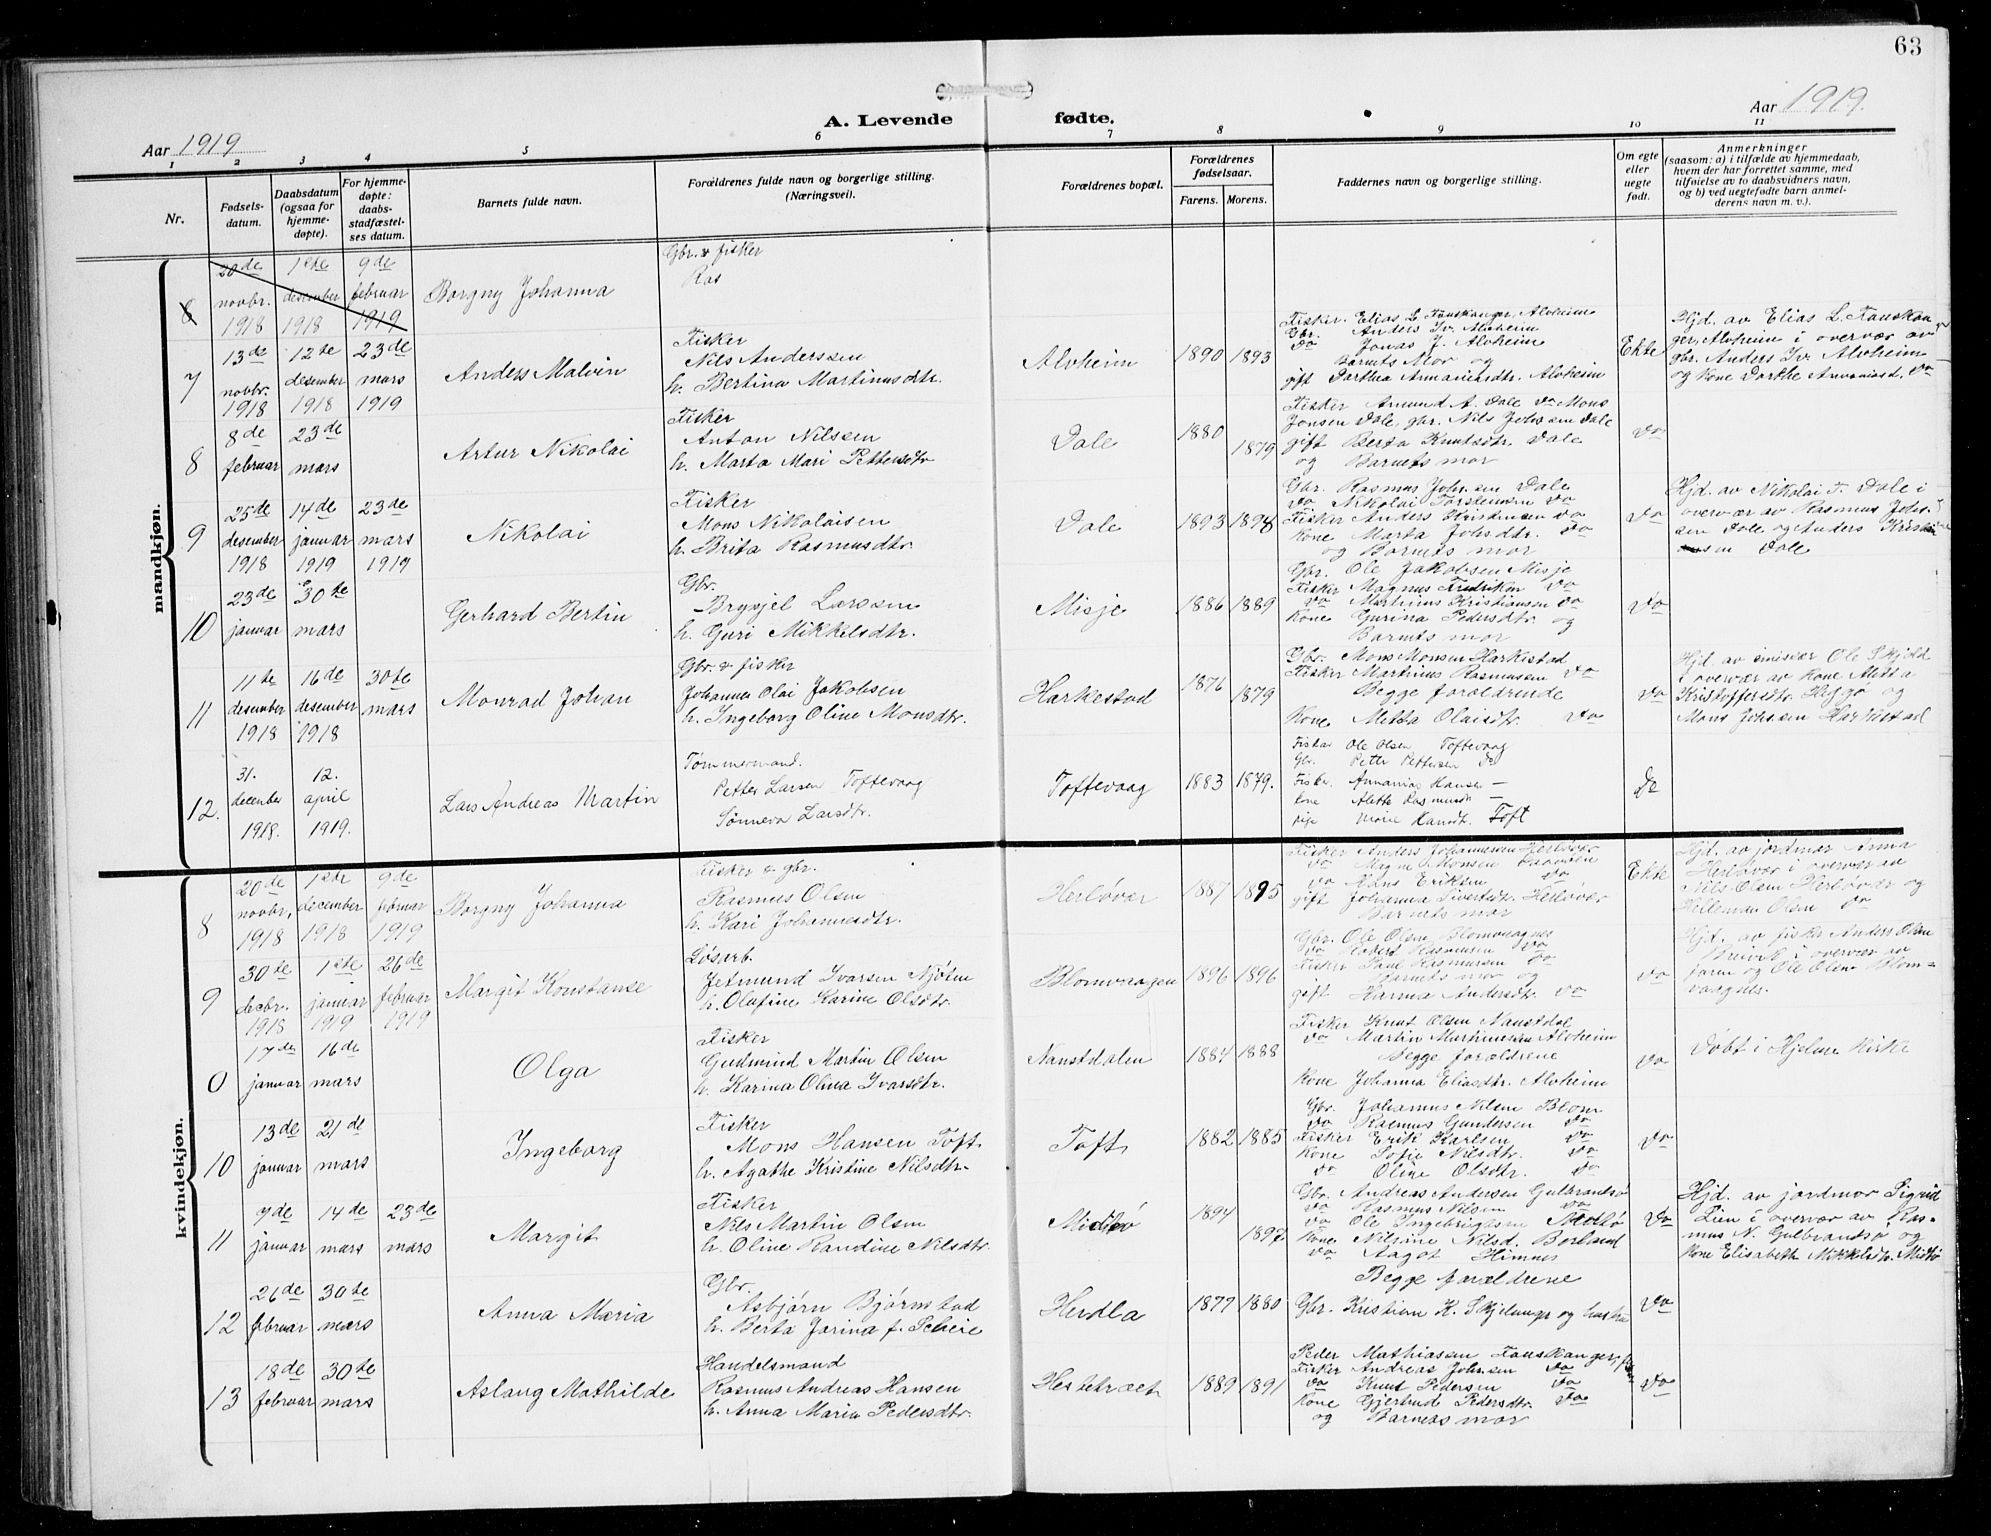 63
Aar 1919
A. Levende fødte.
Aar 1919.
1 2 3 4 5 6 7 8 9 10 11
Nr.
Fødsels-
datum.
Daabsdatum
(ogsaa for
hjemme-
døpte).
For hjemme-
døpte:
daabs-
stadfæstel-
ses datum.
Barnets fulde navn.
Forældrenes fulde navn og borgerlige stilling.
(Næringsvei).
Forældrenes bopæl.
Forældrenes
fødselsaar.
Farens. Morens.
Faddernes navn og borgerlige stilling.
Om egte
eller
uegte
født.
Anmerkninger
(saasom: a) i tilfælde av hjemmedaab,
hvem der har forrettet samme, med
tilføielse av to daabsvidners navn,
og b) ved uegtefødte barn anmel-
derens navn m. v.).
mandkjøn.
8
20de novbr. 1918
1ste desember 1918
9de februar 1919
Borgny Johanna
Gbr. & fisker
Ras
7
13de novbr. 1918
12te desember 1918
23de mars 1919
Anders Malvin
Fisker
Nils Anderssen
h. Bertina Martinusdtr.
Alvheim
1890 1893
Fisker Elias L. Fauskanger, Alvheim
Gbr. Anders Iv. Alvheim
Do Jonas J. Alvheim
Barnets Mor og
gift Dorthea Annaniasdtr. Alvheim
Ekte
Hjd. av Elias L. Fauskan
ger, Alvheim i overvær av
gbr. Anders Iv. Alvheim
og kone Dorthe Annaniasd. Do
8
8de februar
23de mars
Artur Nikolai
Fisker
Anton Nilsen
h. Marta Mari Pettersdtr
Dale
1880 1879
Fisker Amund A. Dale Do Mons
Jonsen Dale, gbr. Nils Johsen Dale
gift Berta Knutsdtr. Dale
og Barnets mor
Do
9
25de desember 1918
14de januar 1919
23de mars 1919
Nikolai
Fisker
Mons Nikolaisen
h. Brita Rasmusdtr.
Dale
1893 1898
Gbr. Rasmus Johsen Dale
Do Nikolai Torstensen Do
Fisker Anders Kristensen Do
Kone Marta Johsdtr. Do
og Barnets mor
Do
Hjd. av Nikolai T. Dale i
overvær av Rasmus Johs-
sen Dale og Anders Kristi
sen Dale
10
23de januar
30te mars
Gerhard Bertin
Gbr.
Brynjel Larssen
h. Guri Mikkelsdtr.
Misje
1886 1889
Gbr. Ole Jakobsen Misje
Fisker Magnus Fredriksen Do
Do Martinus Kristiansen Do
Kone Gurina Pedersdtr. og
Barnets mor
Do
11
11te desember 1918
16de desember 1918
30te mars
Monrad Johan
Gbr. & fisker
Johannes Olai Jakobsen
h. Ingeborg Oline Monsdtr.
Harkestad
1876 1879
Gbr. Mons Monsen Harkestad
Fisker Martinus Rasmussen Do
Begge forældrende
Kone Metta Olaisdtr. Do
Do
Hjd. av emisær Ole Skjold
i overvær av kone Aletta
Kristoffersdtr. Heggø og
Mons Johssen Harkestad
12.
31. december 1918.
12. april 1919.
Lars Andreas Martin
Tømmermand.
Petter Larsen Toftevaag
Sønneva Larsdtr.
Toftevaag
1883 1879.
Fisker Ole Olsen Toftevaag
Gbr. Petter Pettersen Do
Fisker Annanias Hansen —
Kone Alette Rasmusdtr —
pige Marie Hansdtr. Toft
Do
kvindekjøn.
8
20de novbr, 1918
1ste december 1918
9de februar 1919
Borgny Johanna
Fisker & gbr.
Rasmus Olsen
h. Kari Johannesdtr.
Herløvær
1887 1895
Fisker Anders Johannessen Herløvær
Do Magne Monsen
Do Hans Eriksen Do
gift Johanna Sivertsdtr. Herløvær
Barnets mor
Ekte
Hjd. av jordmor Anna
Herløvær i overvær av
Nils Olsen Herløvær og
Hilleman Olsen Do
9
30te decbr. 1918
1ste januar 1919
26de februar 1919
Margit Konstanse
Løsarb.
Jetmund Ivarsen Njøten
h. Olufine Karine Olsdtr.
Blomvaagen
1896 1896
Gbr. Ole Olsen Blomvaagnes
Do Robert Rasmussen Do
Fisker Paul Rasmussen Do
Barnets mor og
gift Hanna Andersdtr. Do
Do
Hjd. av fisker Anders Olsen
Breivik i overvær av
faren og Ole Olsen Blom-
vaagnes.
0
17de januar
16de mars
Olga
Fisker
Gudmund Martin Olsen
h. Karina Olina Ivarsdtr.
Naustdalen
1884 1888
Fisker Knut Olsen Naustdal
Do Martin Martinussen Alvheim
Begge forældrene
Kone Johanna Eliasdtr. Alvheim
Do
Døbt i Hjelme Kirke
10
13de januar
21de mars
Ingeborg
Fisker
Mons Hansen Toft.
h. Agathe Kristine Nilsdtr.
Toft
1882 1885
Gbr. Johannes Nilsen Blom
Do Rasmus Gundersen Do
Fisker Erik Karlsen Do
Kone Sofie Nilsdtr. Do
Do Oline Olsdtr. Do
Do
11
9de januar
14de mars
23de mars
Margit
Fisker
Nils Martin Olsen
h. Oline Randine Nilsdtr.
Midtø
1894 1897
Gbr. Andreas Andersen Gulbrandsø
Do Rasmus Nilsen Do
Do Ole Ingebrigtsen Midtø
Kone Nilsine Nilsd. Berland
Do Aagot Himnes
Do
Hjd. av jordmor Sigrid
Lien i overvær av Ras-
mus N. Gulbrandsø og
Kone Elisabeth Mikkelsdtr. Midtø
12
26de februar
30te mars
Anna Maria
Gbr.
Asbjørn Bjørnstad
h. Berta Jorina f. Scheie
Herdla
1877 1880
Begge forældrene
Gbr. Kristian K. Skjelanger og hustru
Do
13
18de februar
30te mars
Aslaug Mathilde
Handelsmand
Rasmus Andreas Hansen
h. Anna Maria Pedersdtr.
Hestetræet
1889 1891
Peder Mathiassen Fauskanger,
Fisker Andreas Johsen Do
Do Knut Pedersen Do
Kone Gjertrud Pedersdtr. Do
og Barnets mor
Do